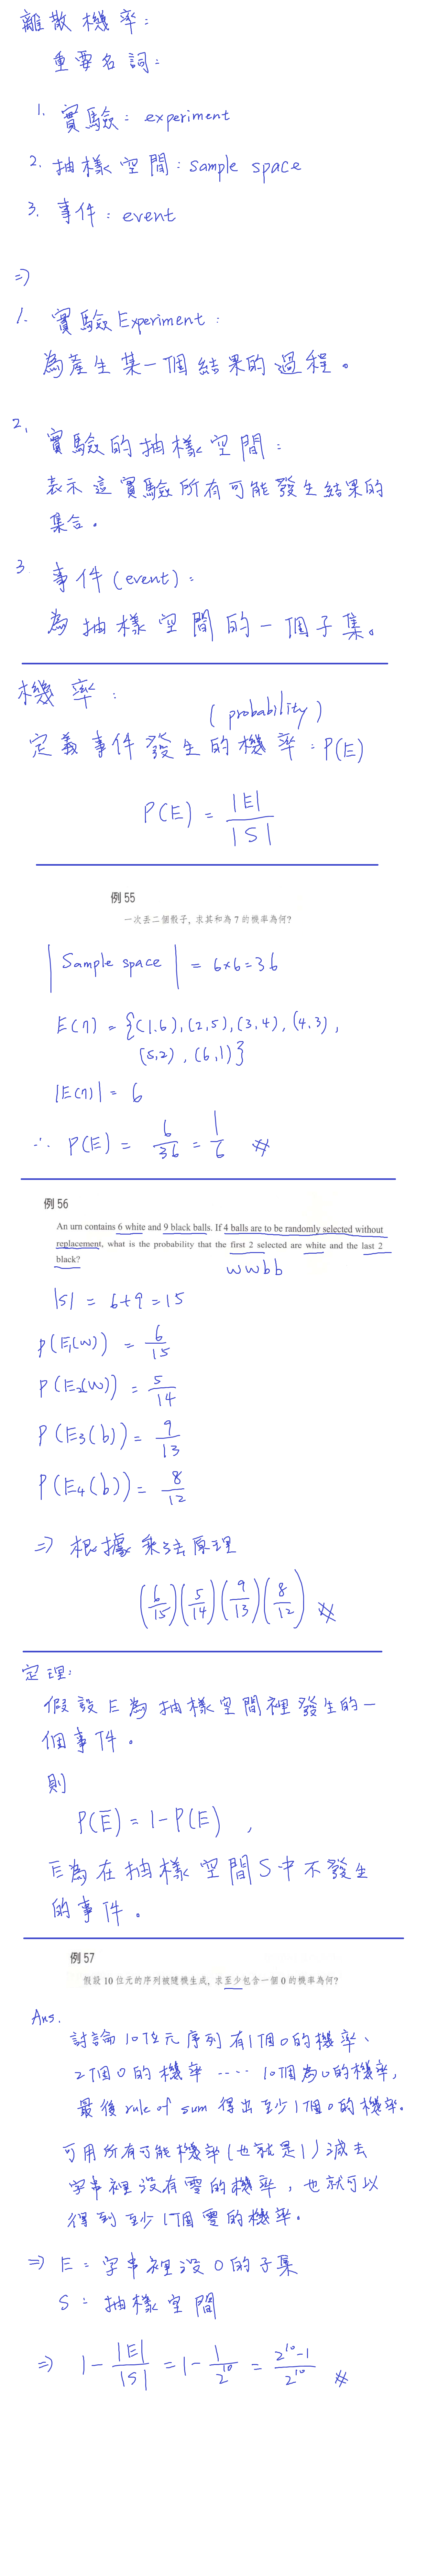 離散機率:
重要名詞:
1. 實驗: experiment
2. 抽樣空間: sample space
3. 事件: event
⇒
1. 實驗 Experiment:
為產生某一個結果的過程。
2. 實驗的抽樣空間:
表示這實驗所有可能發生結果的
集合。
3 事件(event):
為抽樣空間的一個子集。
機率: (probability)
定義事件發生的機率: P(E)
P(E) = |E| / |S|
例 55
一次丟二個骰子, 求其和為 7 的機率為何?
|Sample space| = 6×6=36
E(7) = {(1,6),(2,5),(3,4),(4,3),
(5,2),(6,1)}
|E(7)| = 6
∴ P(E) = 6/36 = 1/6 #
例 56
An urn contains 6 white and 9 black balls. If 4 balls are to be randomly selected without
replacement, what is the probability that the first 2 selected are white and the last 2
black?
wwbb
|S| = 6+9=15
P(E1(w)) = 6/15
P(E2(w)) = 5/14
P(E3(b)) = 9/13
P(E4(b)) = 8/12
⇒ 根據乘法原理
(6/15)(5/14)(9/13)(8/12) #
定理:
假設E為抽樣空間裡發生的一
個事件。
則
P(Ē) = 1-P(E) ,
Ē為在抽樣空間S中不發生
的事件。
例 57
假設 10 位元的序列被隨機生成, 求至少包含一個 0 的機率為何?
Ans.
討論10位元序列有1個0的機率、
2個0的機率 ···· 10個為0的機率,
最後 rule of sum 得出至少1個0的機率.
可用所有可能機率(也就是1)減去
字串裡沒有零的機率, 也就可以
得到至少1個零的機率。
⇒ E: 字串裡沒0的子集
S: 抽樣空間
⇒ 1 - |E|/|S| = 1 - 1/2^10 = (2^10-1)/2^10 #